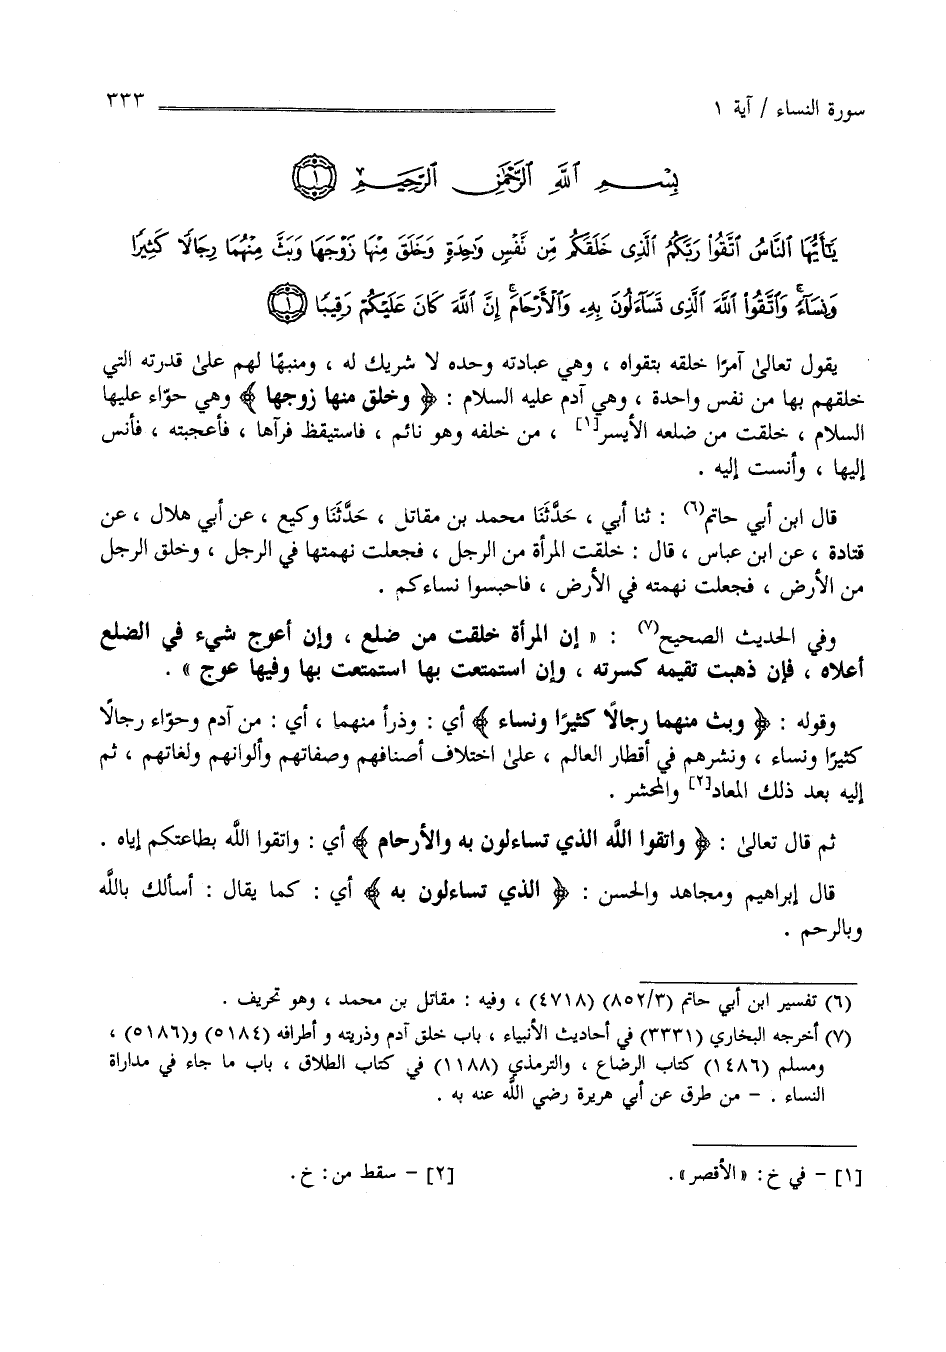 سورة النساء / آية ١ ٣٣٣
بِسْمِ ٱللَّهِ ٱلرَّحْمَٰنِ ٱلرَّحِيمِ ١
يَٰٓأَيُّهَا ٱلنَّاسُ ٱتَّقُوا۟ رَبَّكُمُ ٱلَّذِى خَلَقَكُم مِّن نَّفْسٍ وَٰحِدَةٍ وَخَلَقَ مِنْهَا زَوْجَهَا وَبَثَّ مِنْهُمَا رِجَالًا كَثِيرًا
وَنِسَآءً ۚ وَٱتَّقُوا۟ ٱللَّهَ ٱلَّذِى تَسَآءَلُونَ بِهِۦ وَٱلْأَرْحَامَ ۚ إِنَّ ٱللَّهَ كَانَ عَلَيْكُمْ رَقِيبًا ١
يقول تعالىٰ آمرًا خلقه بتقواه ، وهي عبادته وحده لا شريك له ، ومنبهًا لهم علىٰ قدرته التي
خلقهم بها من نفس واحدة ، وهي آدم عليه السلام : ﴿ وخلق منها زوجها ﴾ وهي حوّاء عليها
السلام ، خلقت من ضلعه الأيسر[١] ، من خلفه وهو نائم ، فاستيقظ فرآها ، فأعجبته ، فأنس
إليها ، وأنست إليه .
قال ابن أبي حاتم(٦) : ثنا أبي ، حَدَّثَنَا محمد بن مقاتل ، حَدَّثَنَا وكيع ، عن أبي هلال ، عن
قتادة ، عن ابن عباس ، قال : خلقت المرأة من الرجل ، فجعلت نهمتها في الرجل ، وخلق الرجل
من الأرض ، فجعلت نهمته في الأرض ، فاحبسوا نساءكم .
وفي الحديث الصحيح(٧) : « إن المرأة خلقت من ضلع ، وإن أعوج شيء في الضلع
أعلاه ، فإن ذهبت تقيمه كسرته ، وإن استمتعت بها استمتعت بها وفيها عوج » .
وقوله : ﴿ وبث منهما رجالًا كثيرًا ونساء ﴾ أي : وذرأ منهما ، أي : من آدم وحوّاء رجالًا
كثيرًا ونساء ، ونشرهم في أقطار العالم ، علىٰ اختلاف أصنافهم وصفاتهم وألوانهم ولغاتهم ، ثم
إليه بعد ذلك المعاد[٢] والمحشر .
ثم قال تعالىٰ : ﴿ واتقوا اللَّه الذي تساءلون به والأرحام ﴾ أي : واتقوا اللَّه بطاعتكم إياه .
قال إبراهيم ومجاهد والحسن : ﴿ الذي تساءلون به ﴾ أي : كما يقال : أسألك باللَّه
وبالرحم .
(٦) تفسير ابن أبي حاتم (٨٥٢/٣) (٤٧١٨) ، وفيه : مقاتل بن محمد ، وهو تحريف .
(٧) أخرجه البخاري (٣٣٣١) في أحاديث الأنبياء ، باب خلق آدم وذريته و أطرافه (٥١٨٤) و(٥١٨٦) ،
ومسلم (١٤٨٦) كتاب الرضاع ، والترمذي (١١٨٨) في كتاب الطلاق ، باب ما جاء في مداراة
النساء . – من طرق عن أبي هريرة رضي اللَّه عنه به .
[١] – في خ : « الأقصر » . [٢] – سقط من : خ .